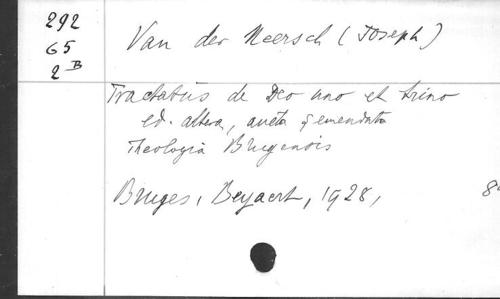 292
65
2B
Van der Meersch (Joseph)
Tractatus de Deo uno et trino
ed. altera, aucta & emendata
Theologia Brugensis
Bruges, Beyaert, 1928,
8